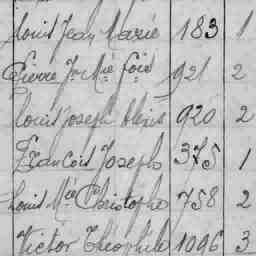 Louis Jean Marie 183 1
Pierre Jn Mie foié 921 2
Louis Joseph Alexis 920 2
François Joseph 375 1
Louis Mie Christophe 758 2
Victor Théophile 1096 3